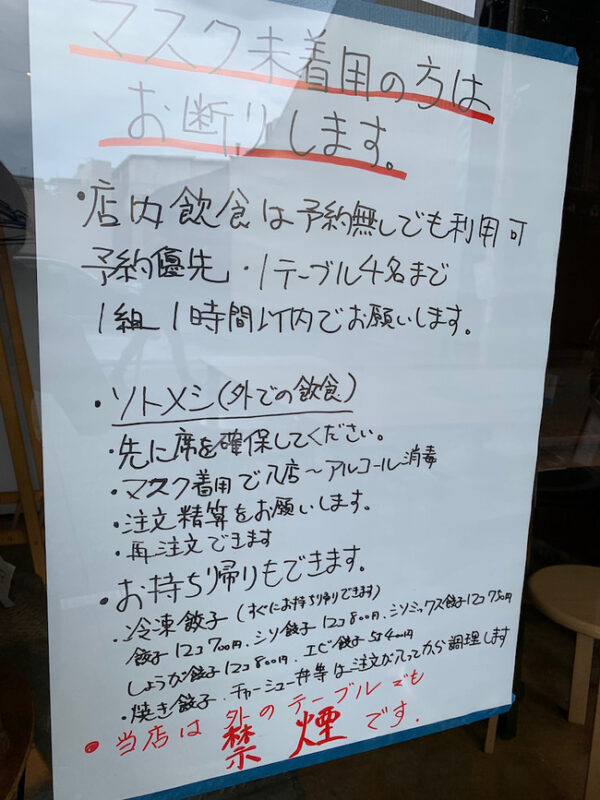 マスク未着用の方は
お断りします。
・店内飲食は予約無しでも利用可
予約優先・1テーブル4名まで
1組1時間以内でお願いします。
・ソトメシ(外での飲食)
・先に席を確保してください。
・マスク着用で入店～アルコール消毒
・注文精算をお願いします。
・再注文できます
・お持ち帰りもできます。
・冷凍餃子(すぐにお持ち帰りできます)
餃子12コ700円、シソ餃子12コ800円、シソミックス餃子12コ750円
しょうが餃子12コ800円、エビ餃子5コ400円
・焼き餃子・チャーシュー丼等は注文が入ってから調理します
・当店は外のテーブルでも
禁煙です.